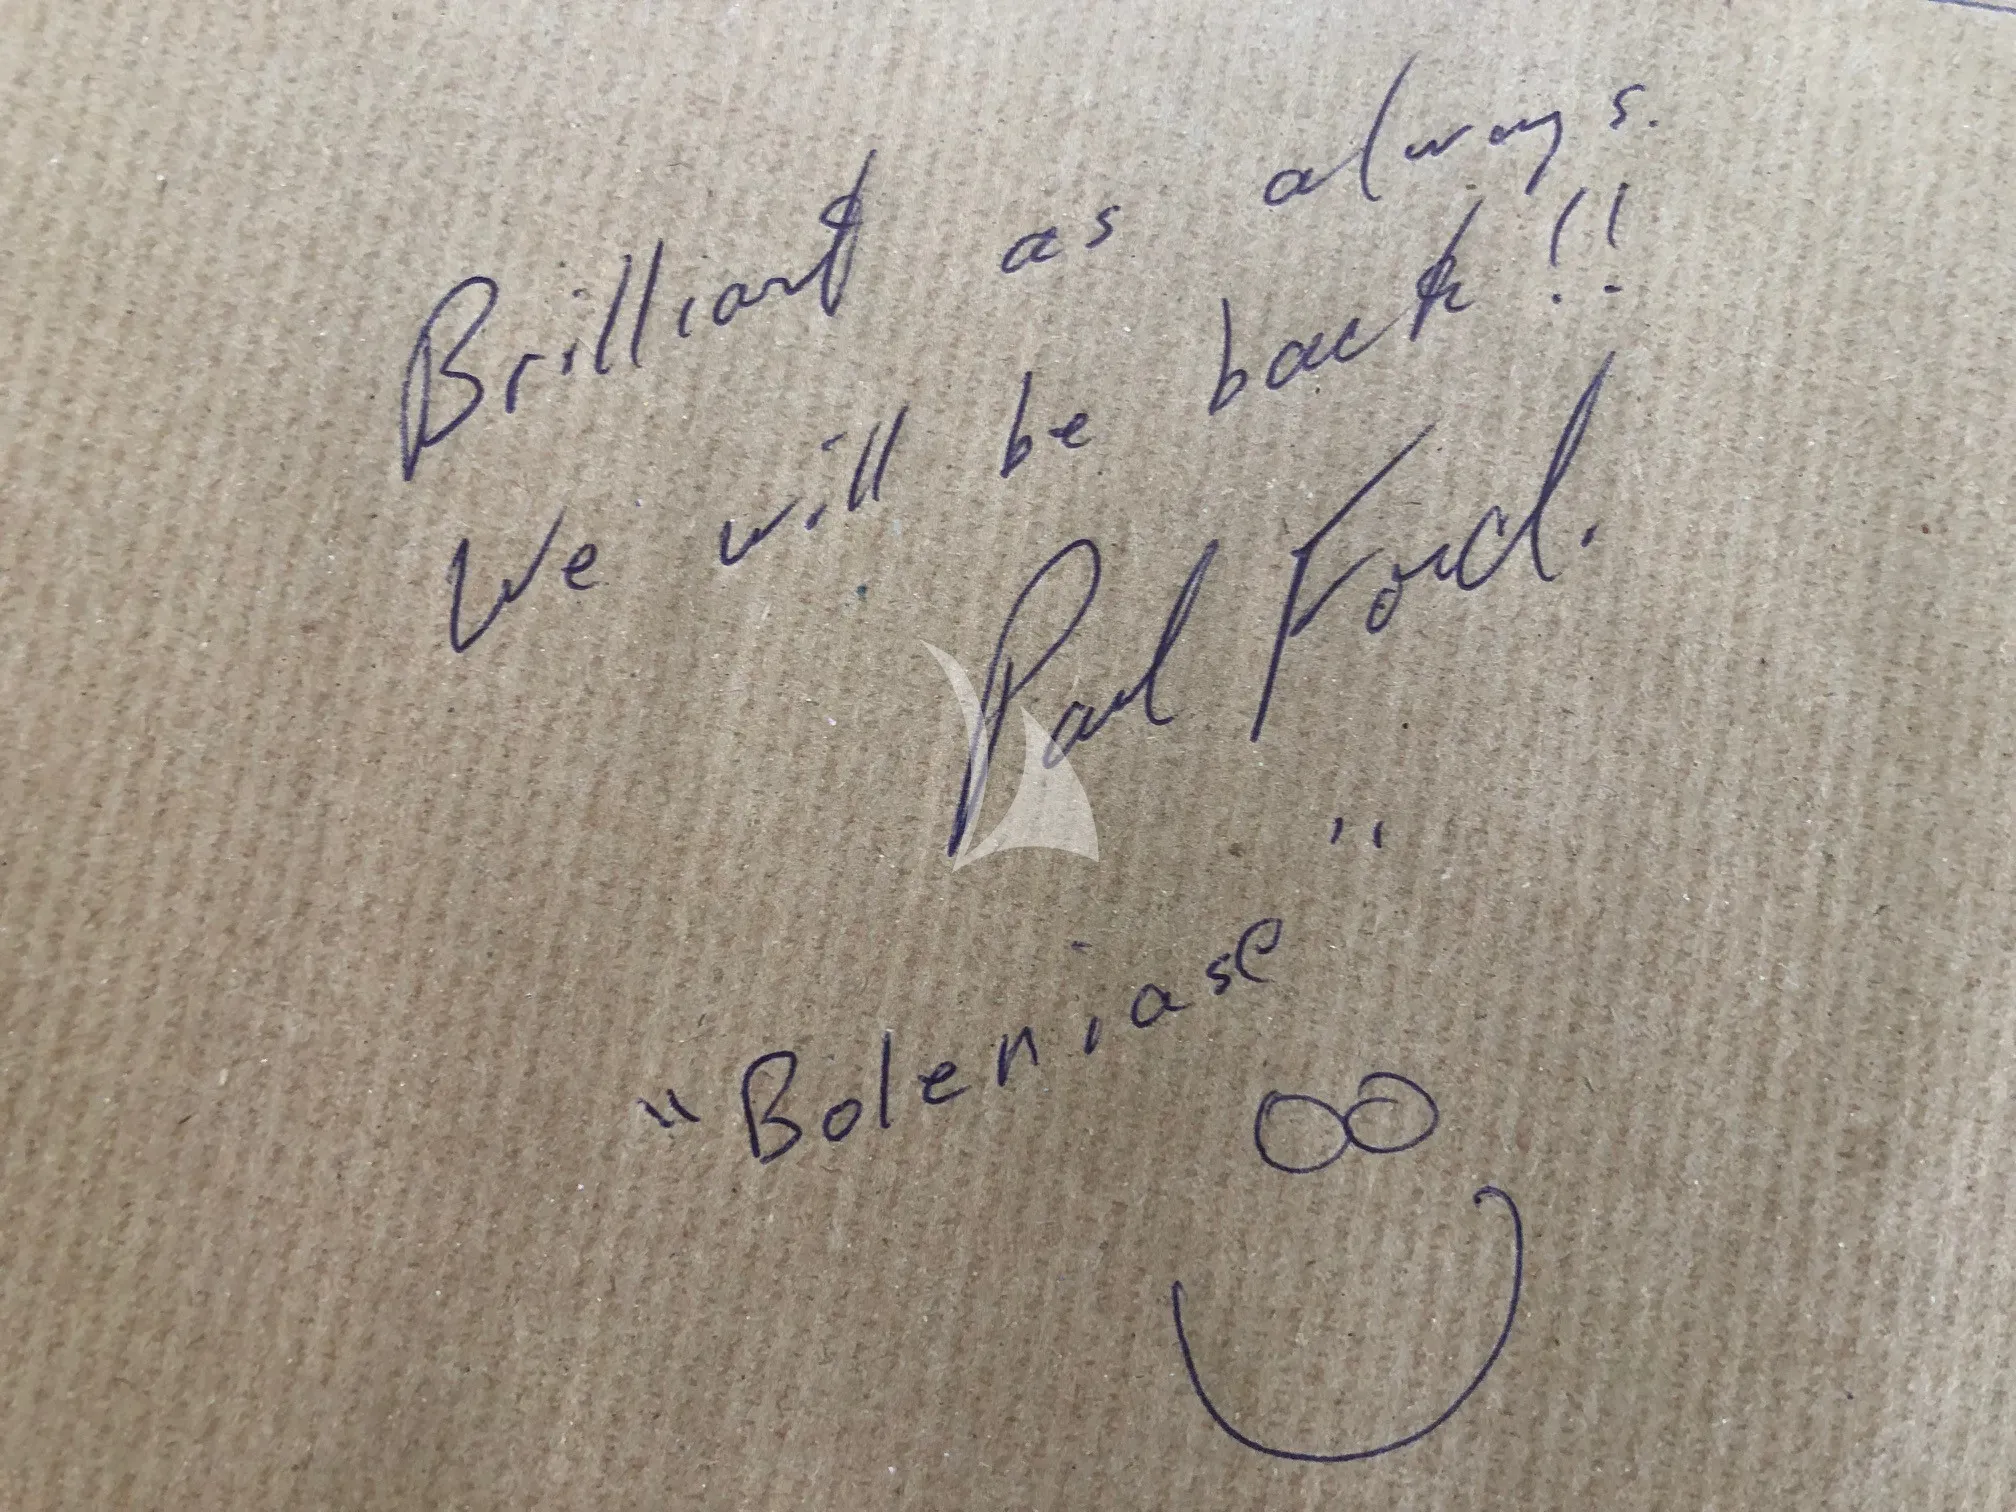 Brilliant as always.
We will be back!!
Paul Ford.
"Boleniase"